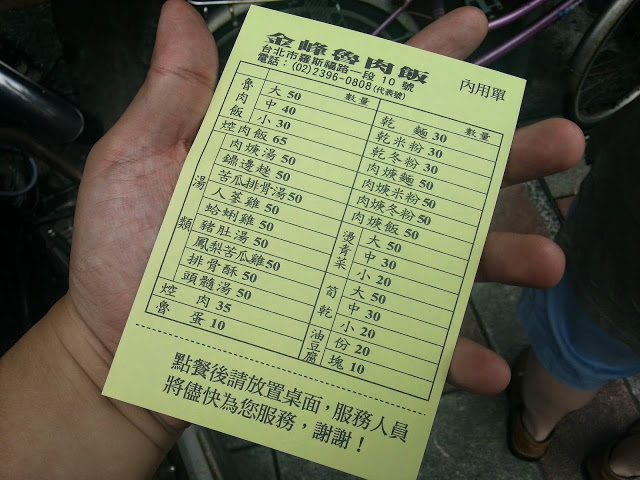 金峰魯肉飯
內用單
台北市羅斯福路一段 10 號
電話：(02)2396-0808(代表號)
數量
魯肉飯
大 50
中 40
小 30
焢肉飯 65
湯類
肉焿湯 50
鏽邊趖 50
苦瓜排骨湯50
人蔘雞 50
蛤蜊雞 50
豬肚湯 50
鳳梨苦瓜雞50
排骨酥 50
頭髓湯 50
焢肉 35
魯蛋 10
數量
乾麵 30
乾米粉 30
乾冬粉 30
肉焿麵 50
肉焿米粉50
肉焿冬粉50
肉焿飯 50
燙青菜
大 50
中 30
小 20
筍乾
大 50
中 30
小 20
油豆腐
份 20
塊 10
點餐後請放置桌面，服務人員
將儘快為您服務，謝謝！